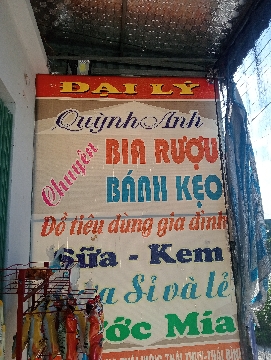 ĐẠI LÝ
Quỳnh Anh
Chuyên
BIA RƯỢU
BÁNH KẸO
Đồ tiêu dùng gia đình
Sữa - Kem
Sỉ và lẻ
Mía